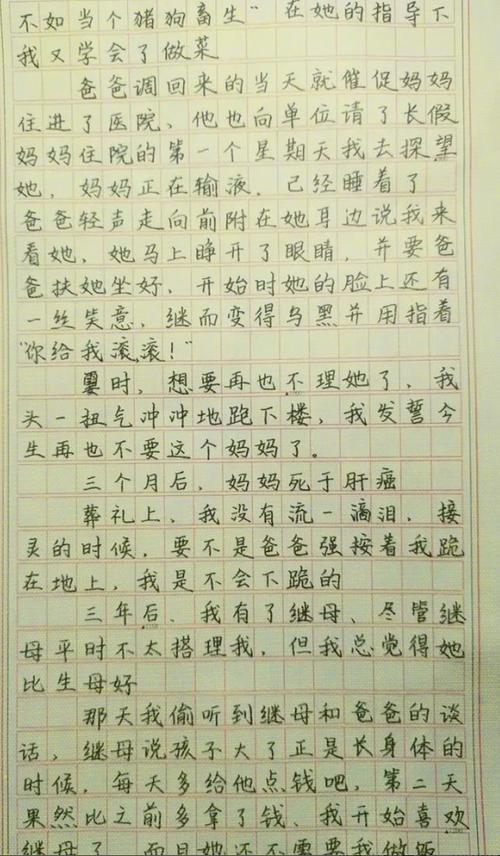 不如当个猪狗畜生”在她的指导下
我又学会了做菜
爸爸调回来的当天就催促妈妈
住进了医院、他也向单位请了长假
妈妈住院的第一个星期天我去探望
她，妈妈正在输液，已经睡着了
爸爸轻声走向前附在她耳边说我来
看她，她马上睁开了眼睛，并要爸
爸扶她坐好，开始时她的脸上还有
一丝笑意，继而变得乌黑并用指着
“你给我滚，滚！”
霎时，想要再也不理她了，我
头一扭气冲冲地跑下楼，我发誓今
生再也不要这个妈妈了。
三个月后，妈妈死于肝癌
葬礼上、我没有流一滴泪，接
灵的时候，要不是爸爸强按着我跪
在地上，我是不会下跪的
三年后、我有了继母、尽管继
母平时不太搭理我，但我总觉得她
比生母好
那天我偷听到继母和爸爸的谈
话，继母说孩子大了正是长身体的
时候，每天多给他点钱吧，第二天
果然比之前多拿了钱、我开始喜欢
继母了，而且她还不需要我做饭